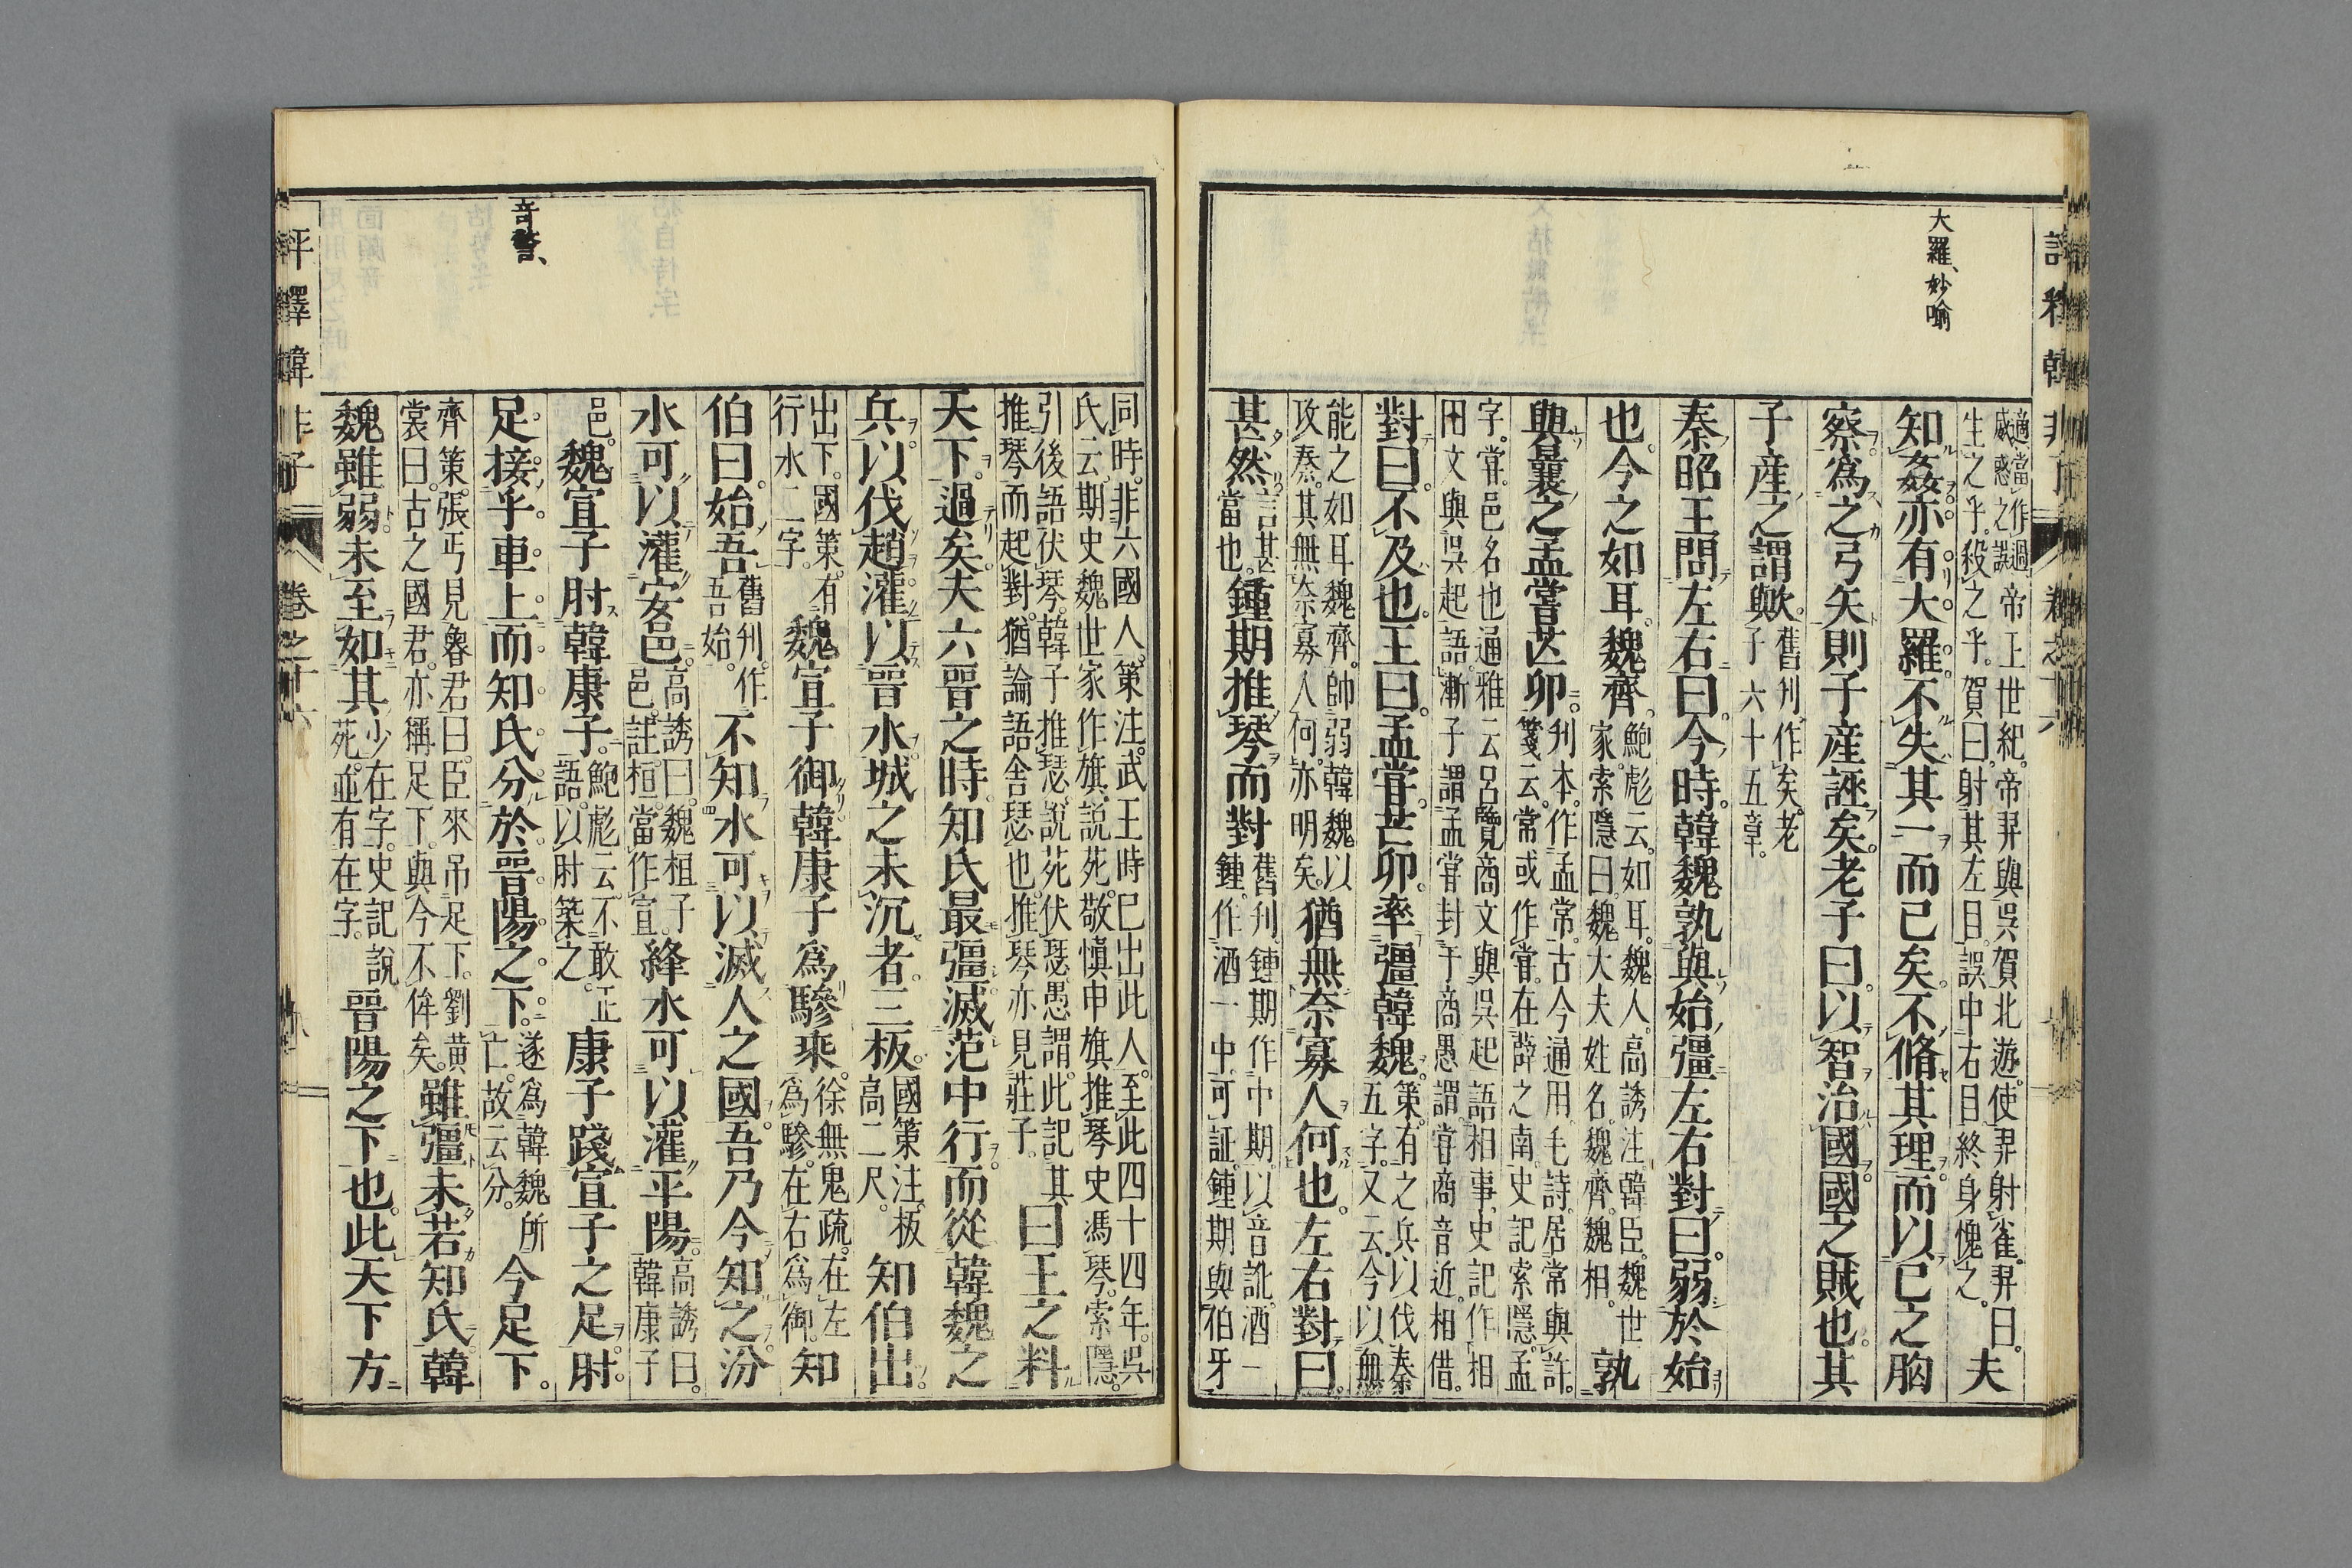 大羅、妙喩
適當作過
感惑之誤
帝王世紀。帝羿與呉賀北遊。使羿射雀。羿曰。
生之乎。殺之乎。賀曰。射其左目。誤中右目。終身愧之。
夫
知姦亦有大羅。不失其一而已矣。不脩其理。而以己之胸
察爲之弓矢。則子産誣矣。老子曰。以智治國。國之賊也。其
子産之謂歟。
舊刋作矣。老
子六十五章。
秦昭王問左右曰。今時韓魏孰與始彊。左右對曰。弱於始
也。今之如耳魏齊。
鮑彪云。如耳。魏人。高誘注韓臣。魏世
家索隱曰。魏大夫姓名。魏齊。魏相。
孰
與曩之孟嘗芒卯。
刋本。作孟常。古今通用。毛詩。居常與許。
箋云。常或作嘗。在薛之南。史記索隱。孟
字。嘗。邑名也。通雅云。呂覽商文與呉起語相事。史記作相
田文與呉起語。漸子謂孟嘗封于商。愚謂。嘗商音近。相借。
對曰。不及也。王曰。孟嘗芒卯。率彊韓魏。
策。有之兵。以伐秦
五字。又云。今以無
能之如耳魏齊。帥弱韓魏以
攻秦。其無奈寡人何。亦明矣。
猶無奈寡人何也。左右對曰。
甚然。
言甚
當也。
鍾期推琴而對
舊刋鍾期作中期。以音訛。酒一
鍾。作酒一中。可証。鍾期與伯牙
同時。非六國人。策注。武王時已出此人。至此四十四年。呉
氏云。期史魏世家作旗。説苑。敬愼申旗推琴。史馮琴。索隱。
引後語伏琴。韓子推瑟。説苑伏瑟。愚謂。此記其
推琴而起對。猶論語舍瑟也。推琴亦見莊子。
曰。王之料
天下。過矣。夫六晉之時。知氏最彊。滅范中行。而從韓魏之
兵。以伐趙。灌以晉水。城之未沉者三板。
國策注。板
高二尺。
知伯出。
出下。國策。有
行水二字。
魏宣子御。韓康子爲驂乘。
徐無鬼疏。在左
爲驂。在右爲御。
知
伯曰。始吾
舊刋。作
吾始。
不知水可以滅人之國。吾乃今知之。汾
水可以灌安邑。
高誘曰。魏祖子
邑。註桓當作宣。
絳水可以灌平陽。
高誘曰。
韓康子
邑。
魏宣子肘韓康子。
鮑彪云。不敢正
語。以肘築之。
康子踐宣子之足。肘
足接乎車上。而知氏分於晉陽之下。
遂爲韓魏所
亡。故云分。
今足下。
齊策。張丐見魯君曰。臣來吊足下。劉黄
裳曰。古之國君。亦稱足下。與今不侔矣。
雖彊。未若知氏。韓
魏雖弱。未至如其
少在字。史記説
苑。並有在字。
晉陽之下也。此天下方
奇警、
評釋韓非子
卷之十六